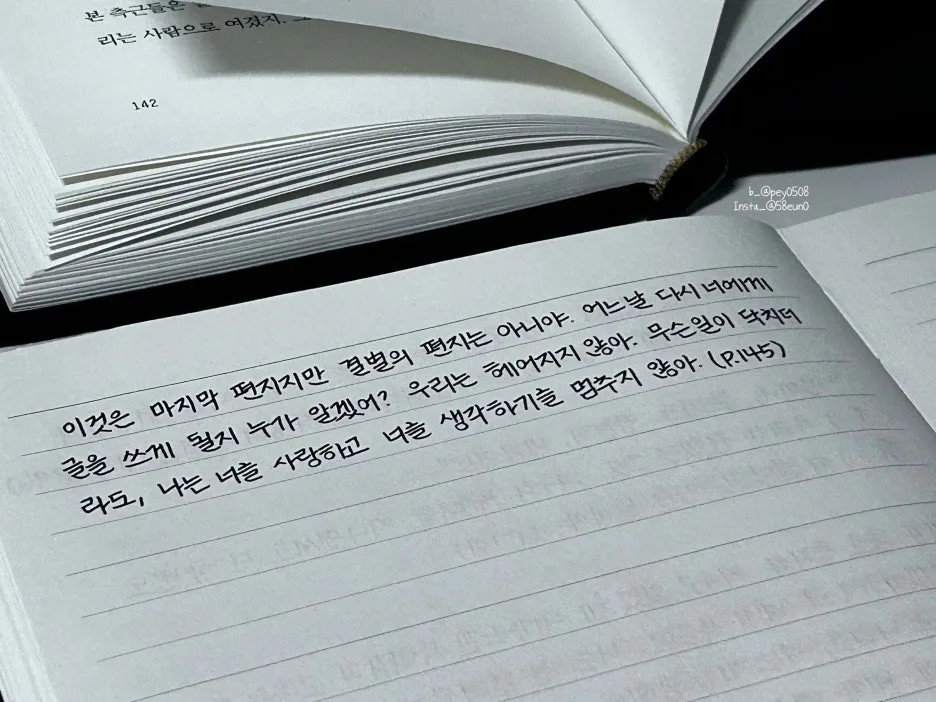 본 측근들은
리는 사람으로 여겼지. 그
142
b_@pey0508
Insta_@58eun0
이것은 마지막 편지지만 결별의 편지는 아니야. 어느날 다시 너에게
글을 쓰게 될지 누가 알겠어? 우리는 헤어지지 않아. 무슨일이 닥치더
라도, 나는 너를 사랑하고 너를 생각하기를 멈추지 않아. (p.145)